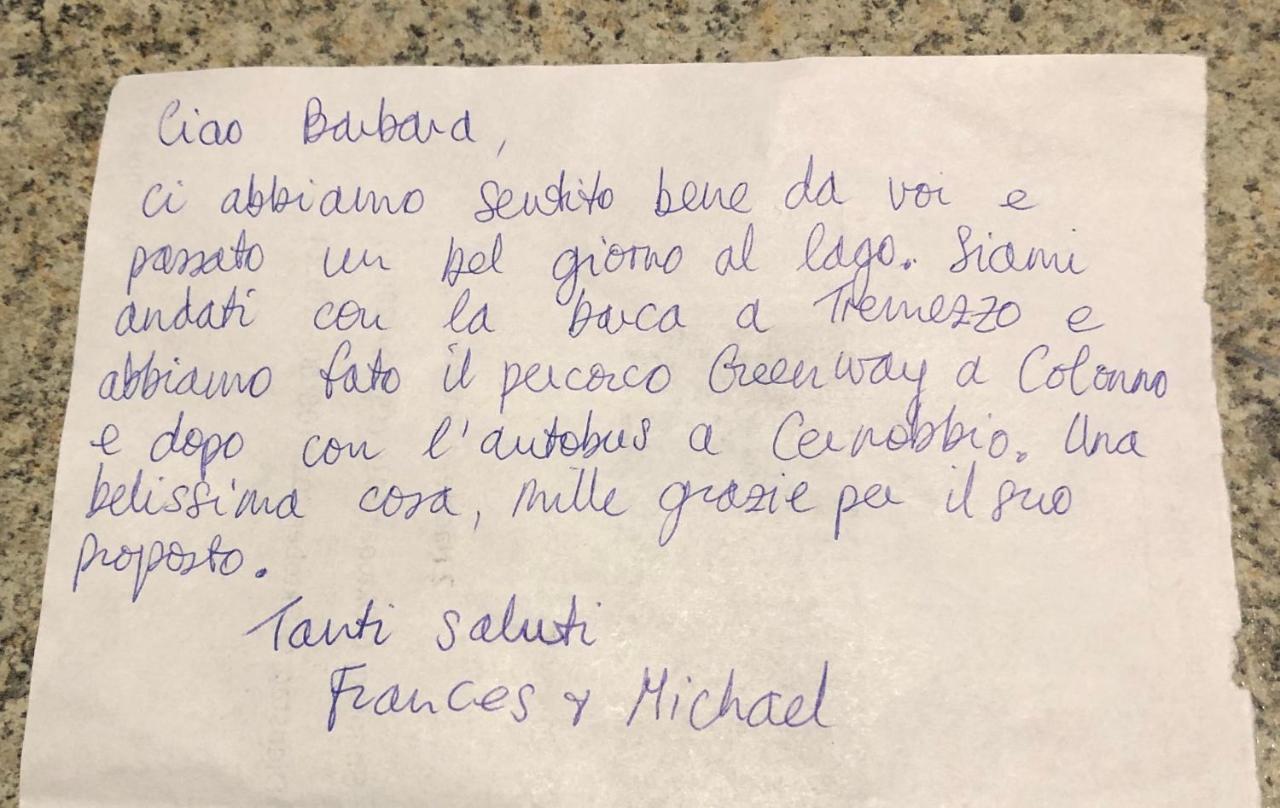 Ciao Barbara,
ci abbiamo sentito bene da voi e
passato un bel giorno al lago. Siami
andati con la barca a Tremezzo e
abbiamo fato il percorco Greenway a Colonno
e dopo con l'autobus a Cernobbio. Una
belissima cosa, mille grazie per il suo
proposto.
Tanti saluti
Frances & Michael